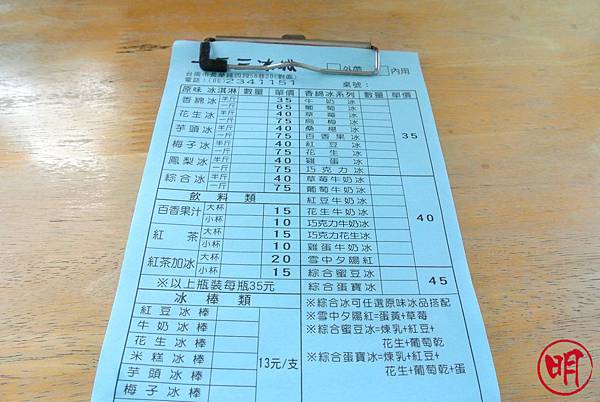 三冰
外帶 內用
電話：(06)2341151
桌號：
原味 冰淇淋 數量 單價 香綿冰系列 數量 單價
香綿冰 半斤 35
一斤 65
花生冰 半斤 40
一斤 75
芋頭冰 半斤 40
一斤 75
梅子冰 半斤 40
一斤 75
鳳梨冰 半斤 40
一斤 75
綜合冰 半斤 40
一斤 75
飲料類
百香果汁 大杯 15
小杯 10
紅茶 大杯 15
小杯 10
紅茶加冰 大杯 20
小杯 15
※以上瓶裝每瓶35元
冰棒類
紅豆冰棒
牛奶冰棒
花生冰棒
米糕冰棒
芋頭冰棒
梅子冰棒
13元/支
牛奶冰
葡萄冰
草莓冰
烏梅冰
桑椹冰
百香果冰
紅豆冰
花生冰
雞蛋冰
巧克力冰
35
草莓牛奶冰
葡萄牛奶冰
紅豆牛奶冰
花生牛奶冰
巧克力牛奶冰
巧克力花生冰
雞蛋牛奶冰
雪中夕陽紅
40
綜合蜜豆冰
綜合蛋寶冰
45
※綜合冰可任選原味冰品搭配
※雪中夕陽紅=蛋黃+草莓
※綜合蜜豆冰=煉乳+紅豆+
花生+葡萄乾
※綜合蛋寶冰=煉乳+紅豆+
花生+葡萄乾+蛋
明